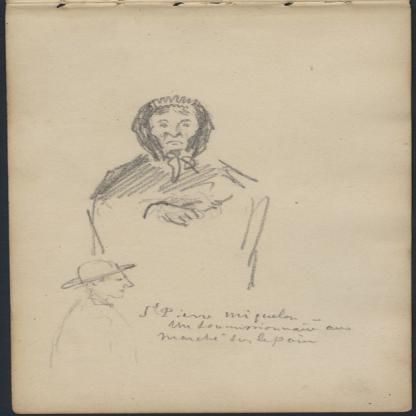 St Pierre Miquelon –
Un soumissionnaire aux
marché sur le pain